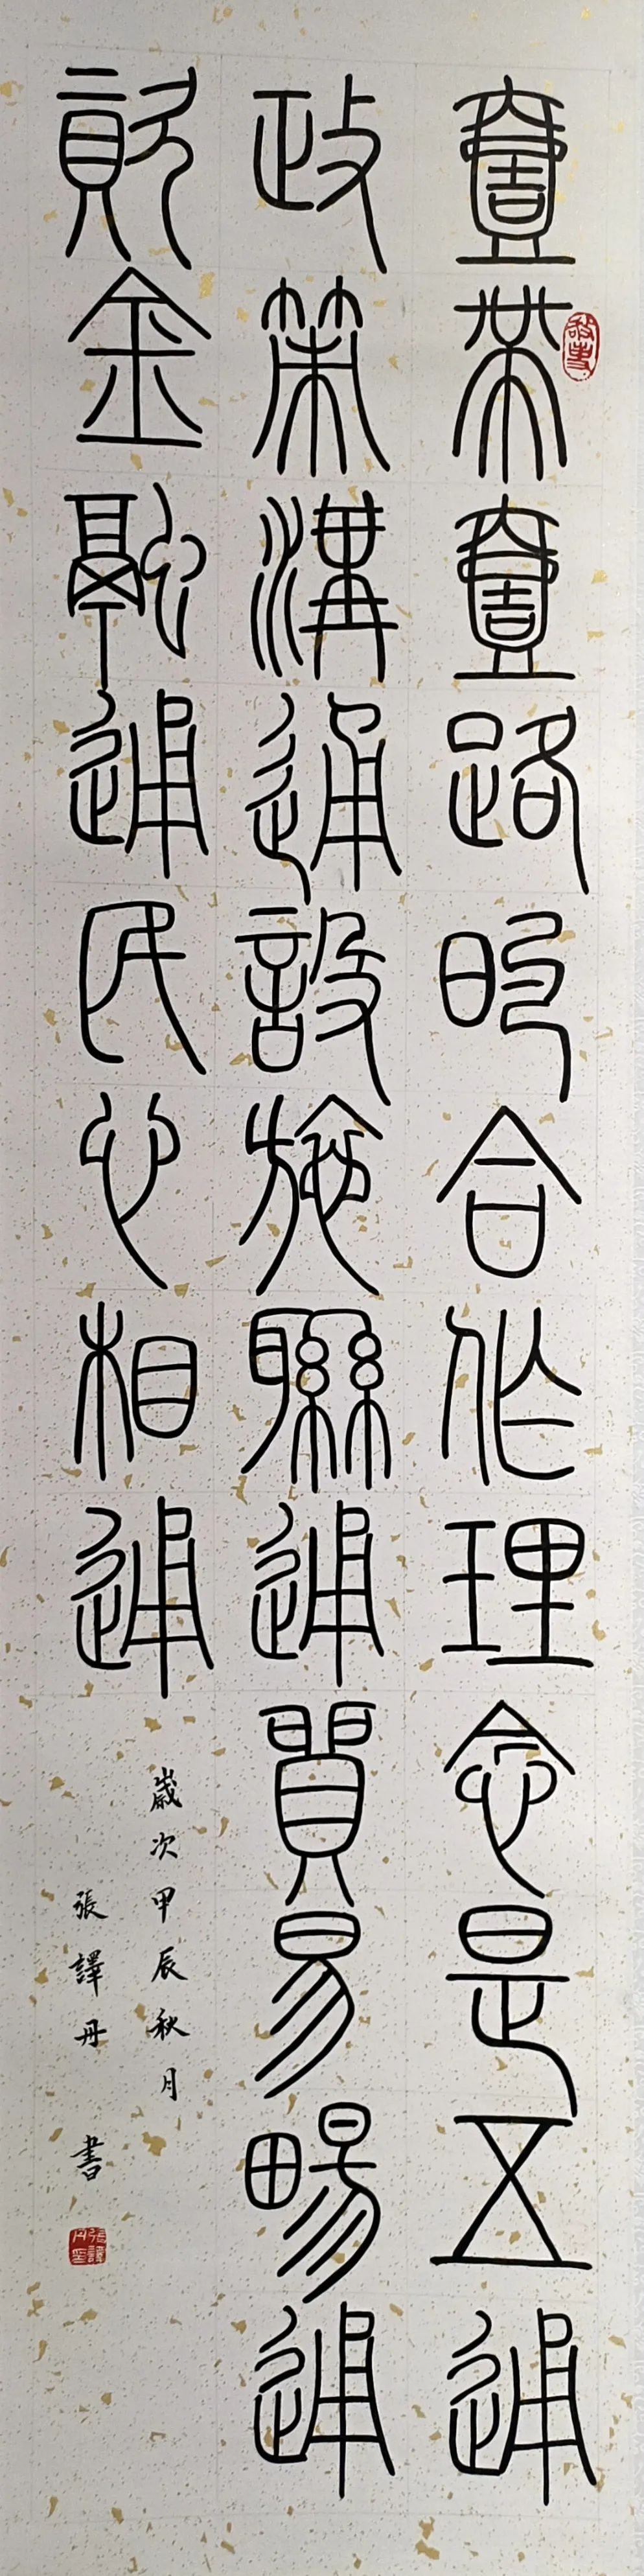 臺帶臺路的合作理念是五通
政策溝通設施聯通貿易暢通
資金融通民心相通
歲次甲辰秋月
張譯丹書
張譯丹印